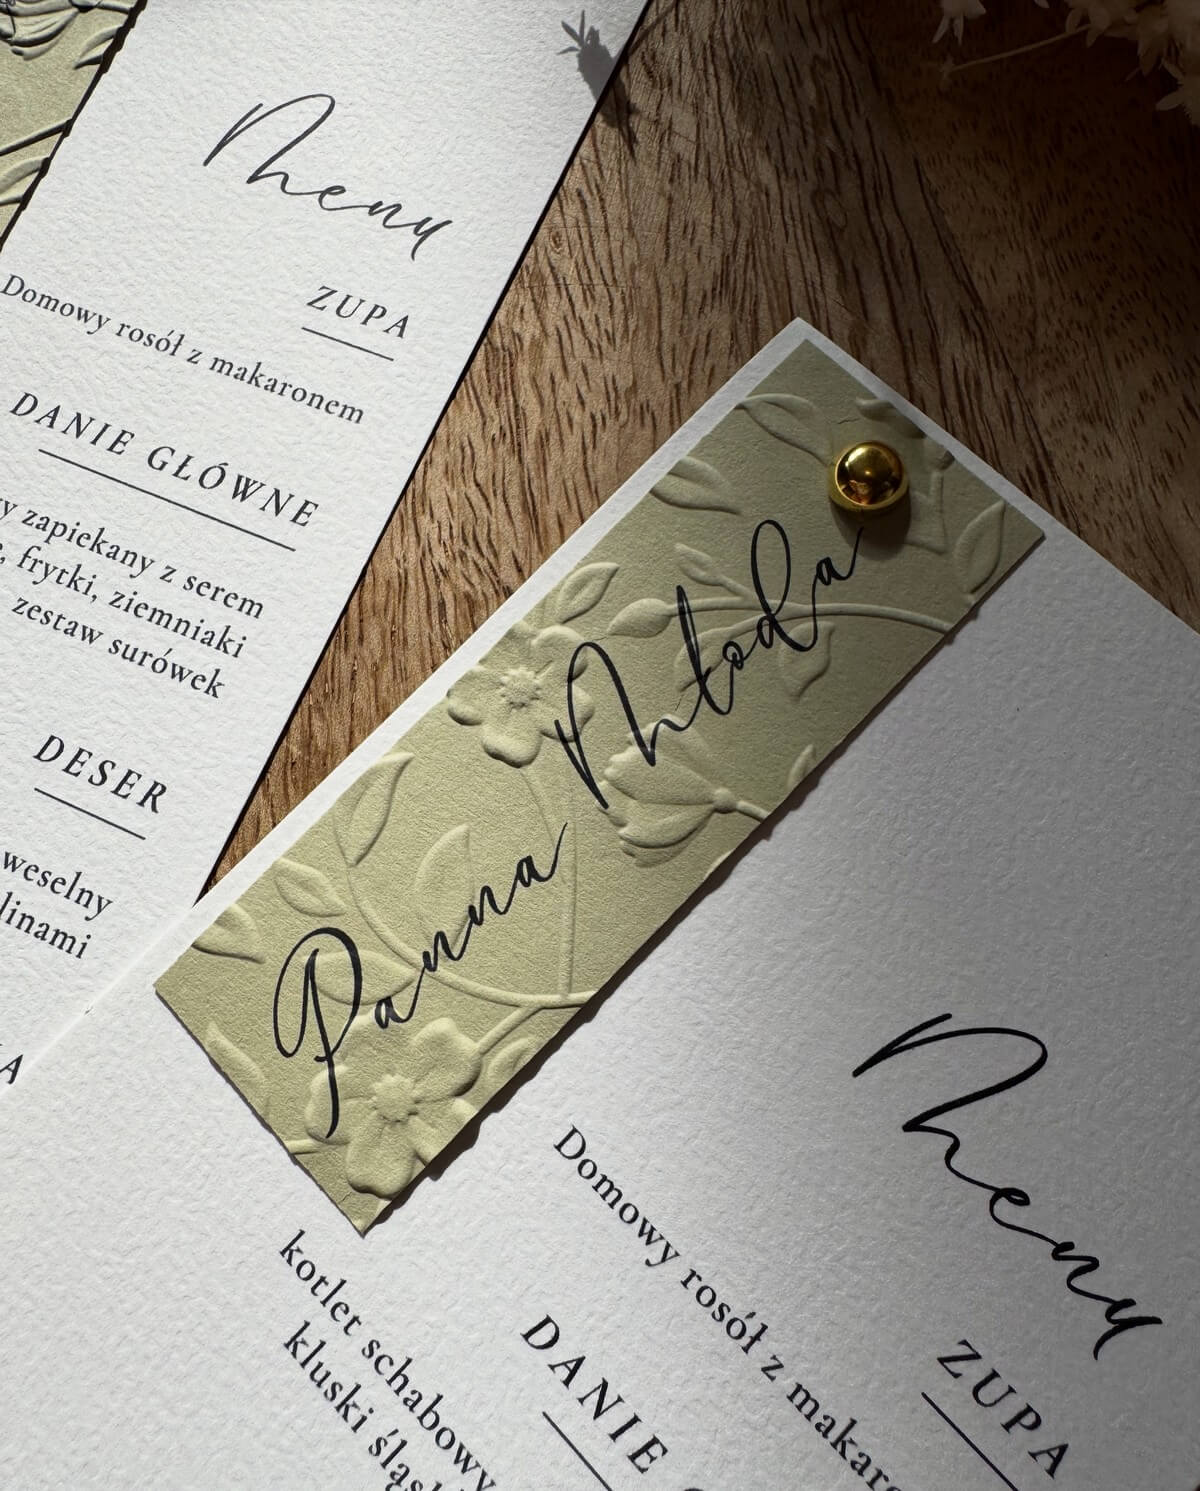 Menu
ZUPA
Domowy rosół z makaronem
DANIE GŁÓWNE
zapiekany z serem
frytki, ziemniaki
zestaw surówek
DESER
weselny
Panna Młoda
Menu
ZUPA
Domowy rosół z
DANIE
kotlet schabowy
kluski